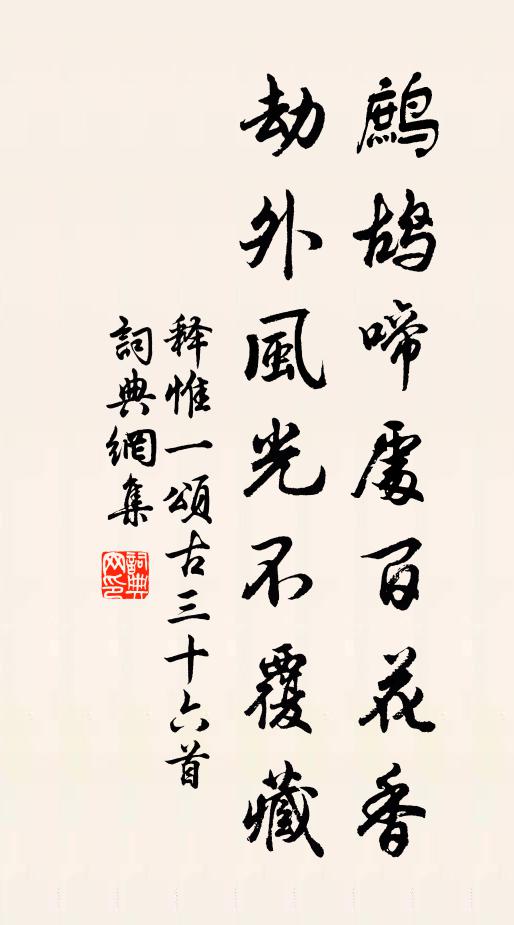 鷓鴣啼處百花香
劫外風光不覆藏
释惟一頌古三十六首
詞典網集
詞典網印